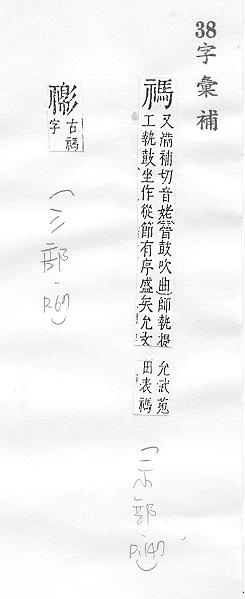 38
字彙補
禡 又滿補切音姥晉鼓吹曲師執提
工執鼓坐作從節有序盛矣允文
允武蒐
田表禡
(示部
P.147)
古禡
字
(彡部.
P.67)